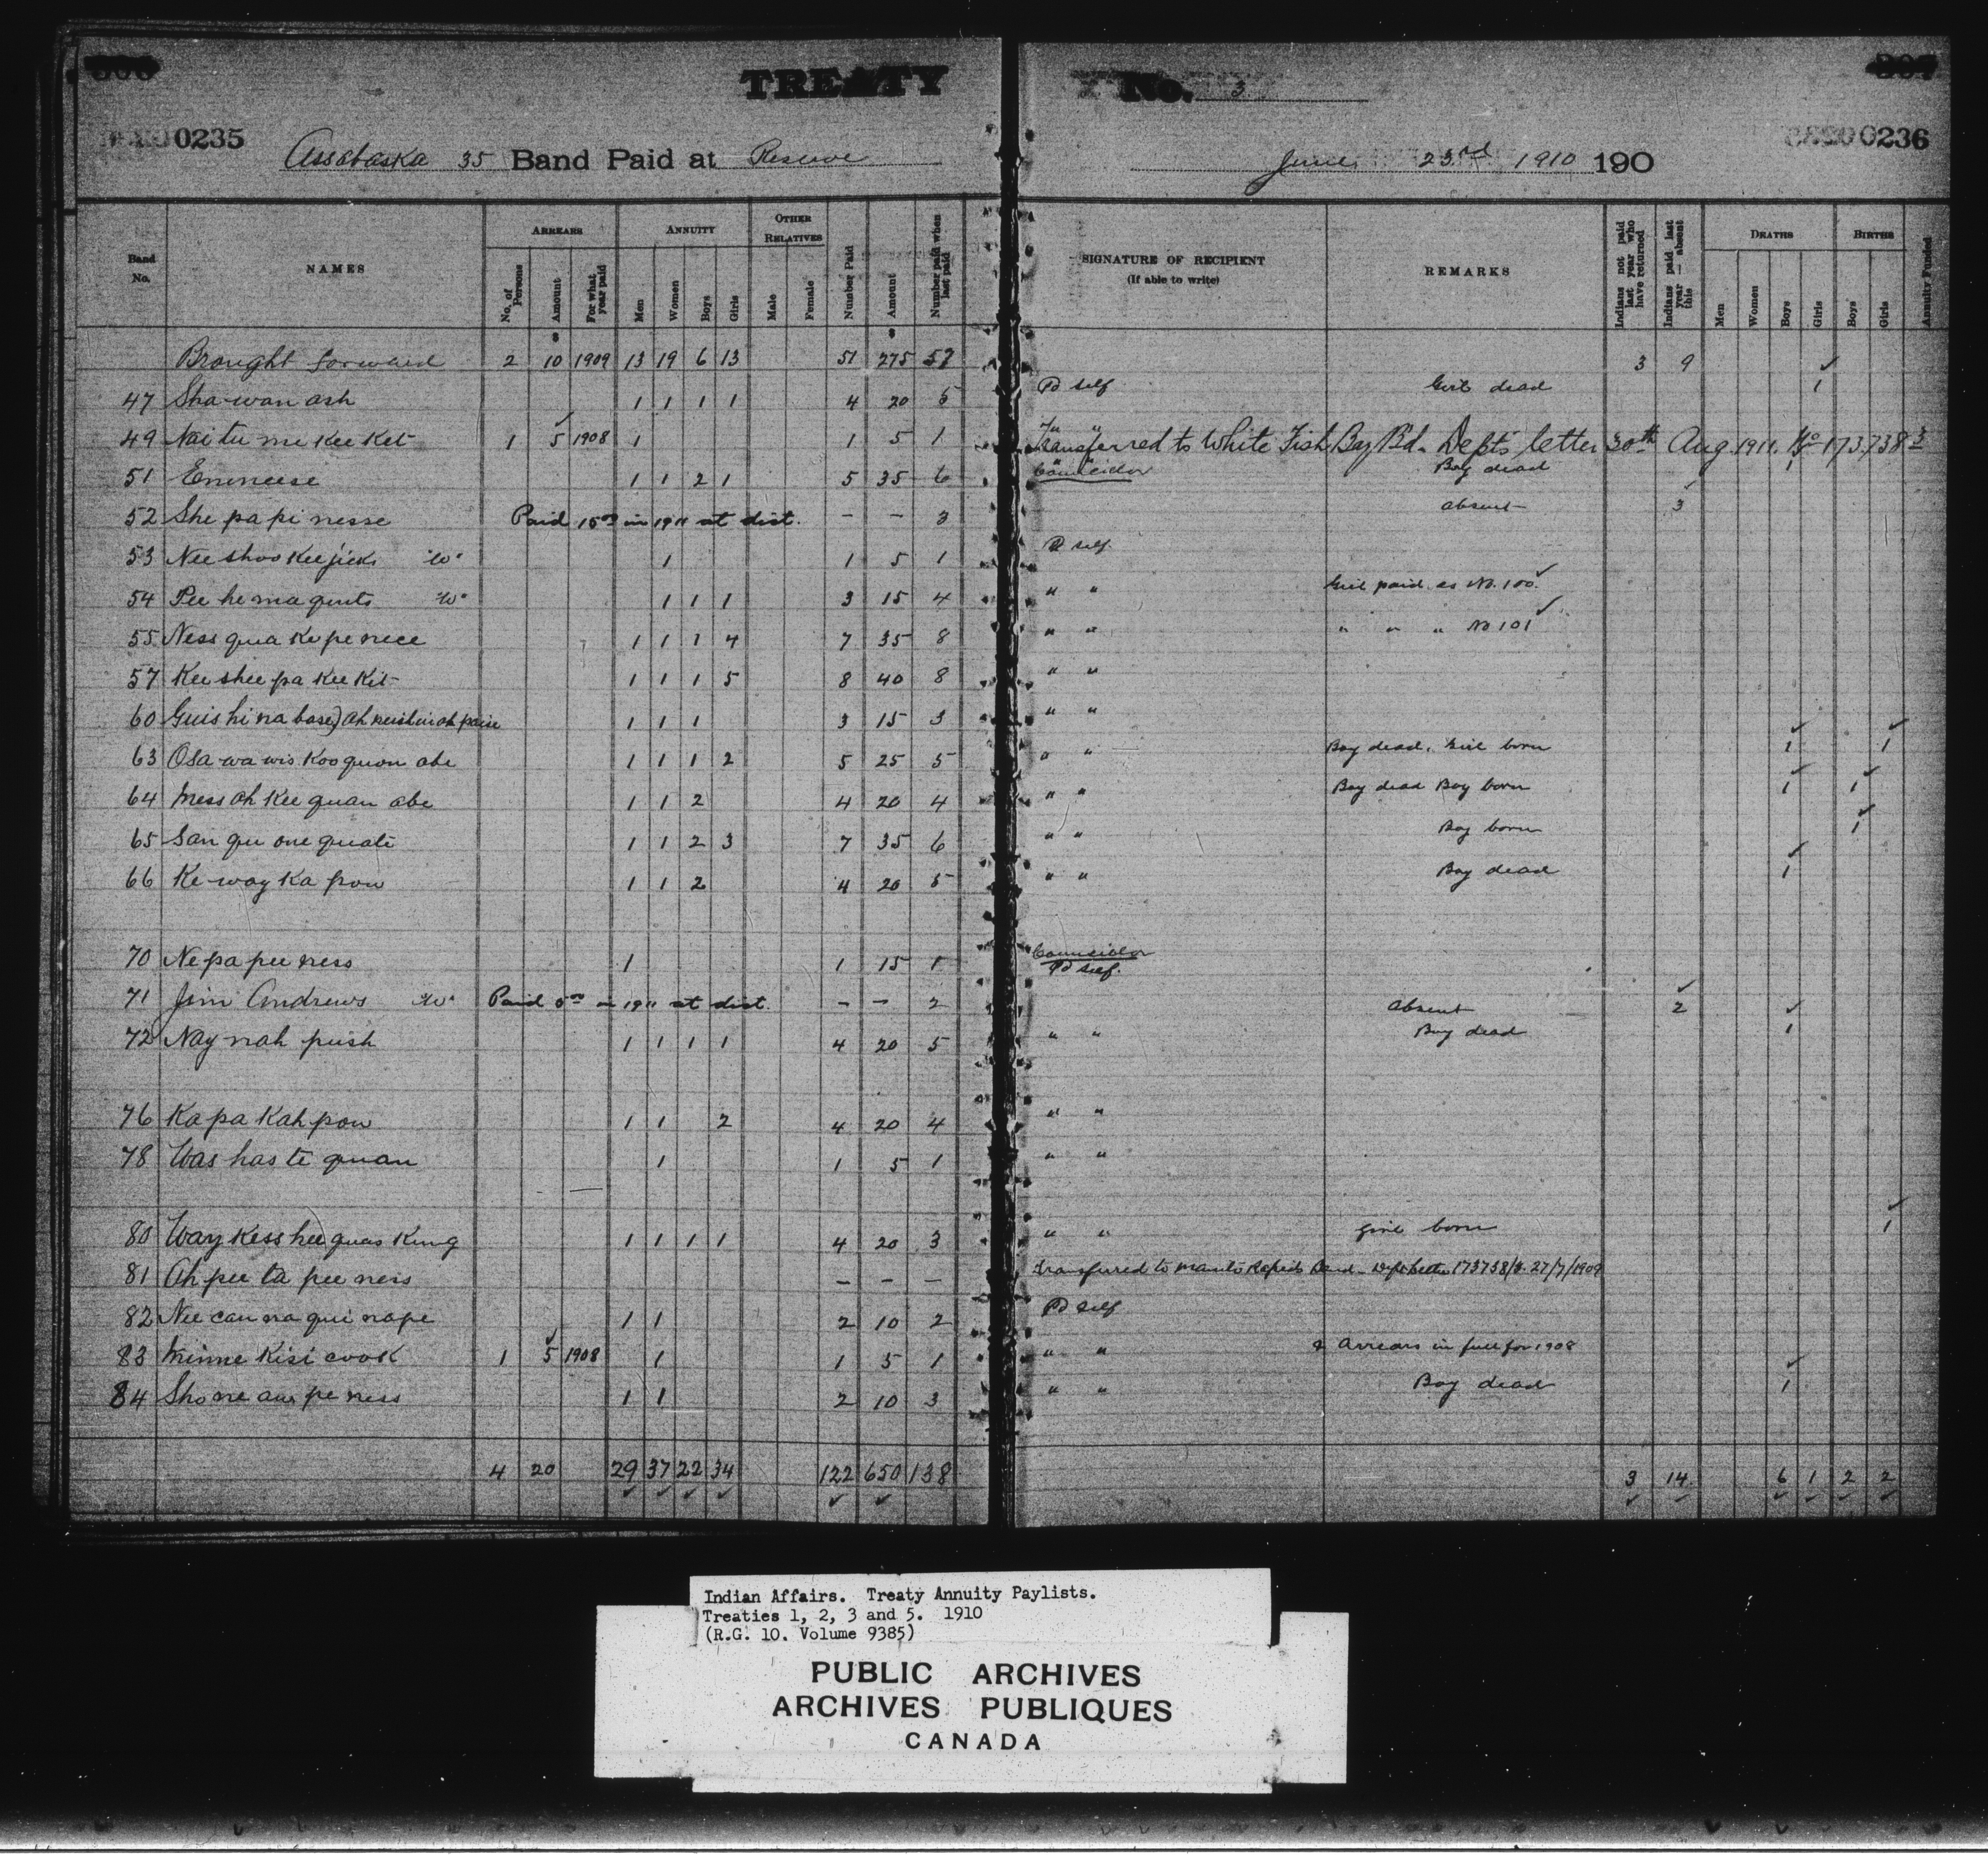 TREATY No. 3
0235
0236
Assabaska 35 Band Paid at Reserve June 23rd 1910 190
Band No. NAMES ARREARS No. of Persons Amount For what year paid ANNUITY Men Women Boys Girls OTHER RELATIVES Male Female Number Paid Amount Number paid when last paid SIGNATURE OF RECIPIENT (If able to write) REMARKS Indians not paid last year who have returned Indians paid last year — absent this DEATHS Men Women Boys Girls BIRTHS Boys Girls Annuity Funded
$ $
Brought forward 2 10 1909 13 19 6 13 51 275 57 3 9
47 Sha-wan ash 1 1 1 1 4 20 5 Pd self Girl dead 1
49 Nai tu me kee ket 1 5 1908 1 1 5 1 " " Transferred to White Fish Bay Bd. Dept's letter 30th Aug. 1911. No 173738-3
51 Enineese 1 1 2 1 5 35 6 Councillor Boy dead 1
52 She pa pi nesse Paid 15.00 in 1911 at dist. — — 3 absent 3
53 Nee shoo kee jick "W" 1 1 5 1 Pd self
54 Pee he ma quts "W" 1 1 1 3 15 4 " " Girl paid as No. 100
55 Ness qua ke pe nece 1 1 1 4 7 35 8 " " " " " No 101
57 Kee shee pa kee kit 1 1 1 5 8 40 8 " "
60 Guis hi na base) 1 1 1 3 15 3 " "
63 Osa-wa wis koo quon abe 1 1 1 2 5 25 5 " " Boy dead, Girl born 1 1
64 Mess ah kee quan abe 1 1 2 4 20 4 " " Boy dead Boy born 1 1
65 San qu one quate 1 1 2 3 7 35 6 " " Boy born 1
66 Ke-way ka pow 1 1 2 4 20 5 " " Boy dead 1
70 Ne pa pee ness 1 1 15 1 Councillor Pd self.
71 Jim Andrews "W" Paid 5.00 in 1911 at dist. — — 2 absent 2
72 Nay nah push 1 1 1 1 4 20 5 " " Boy dead 1
76 Ka pa kah pow 1 1 2 4 20 4 " "
78 Was has te quan 1 1 5 1 " "
80 Way kess hee quas kung 1 1 1 1 4 20 3 " " Girl born 1
81 Ah pee ta pee ness — — — Transferred to Manito Rapids Band - Dept letter 173738/3. 27/7/1909
82 Nee can na qui nape 1 1 2 10 2 Pd self
83 Minne kisi cook 1 5 1908 1 1 5 1 " " & Arrears in full for 1908
84 Sho ne aw pe ness 1 1 2 10 3 " " Boy dead 1
4 20 29 37 22 34 122 650 138 3 14 6 1 2 2
Indian Affairs. Treaty Annuity Paylists.
Treaties 1, 2, 3 and 5. 1910
(R.G. 10. Volume 9385)
PUBLIC ARCHIVES
ARCHIVES PUBLIQUES
CANADA